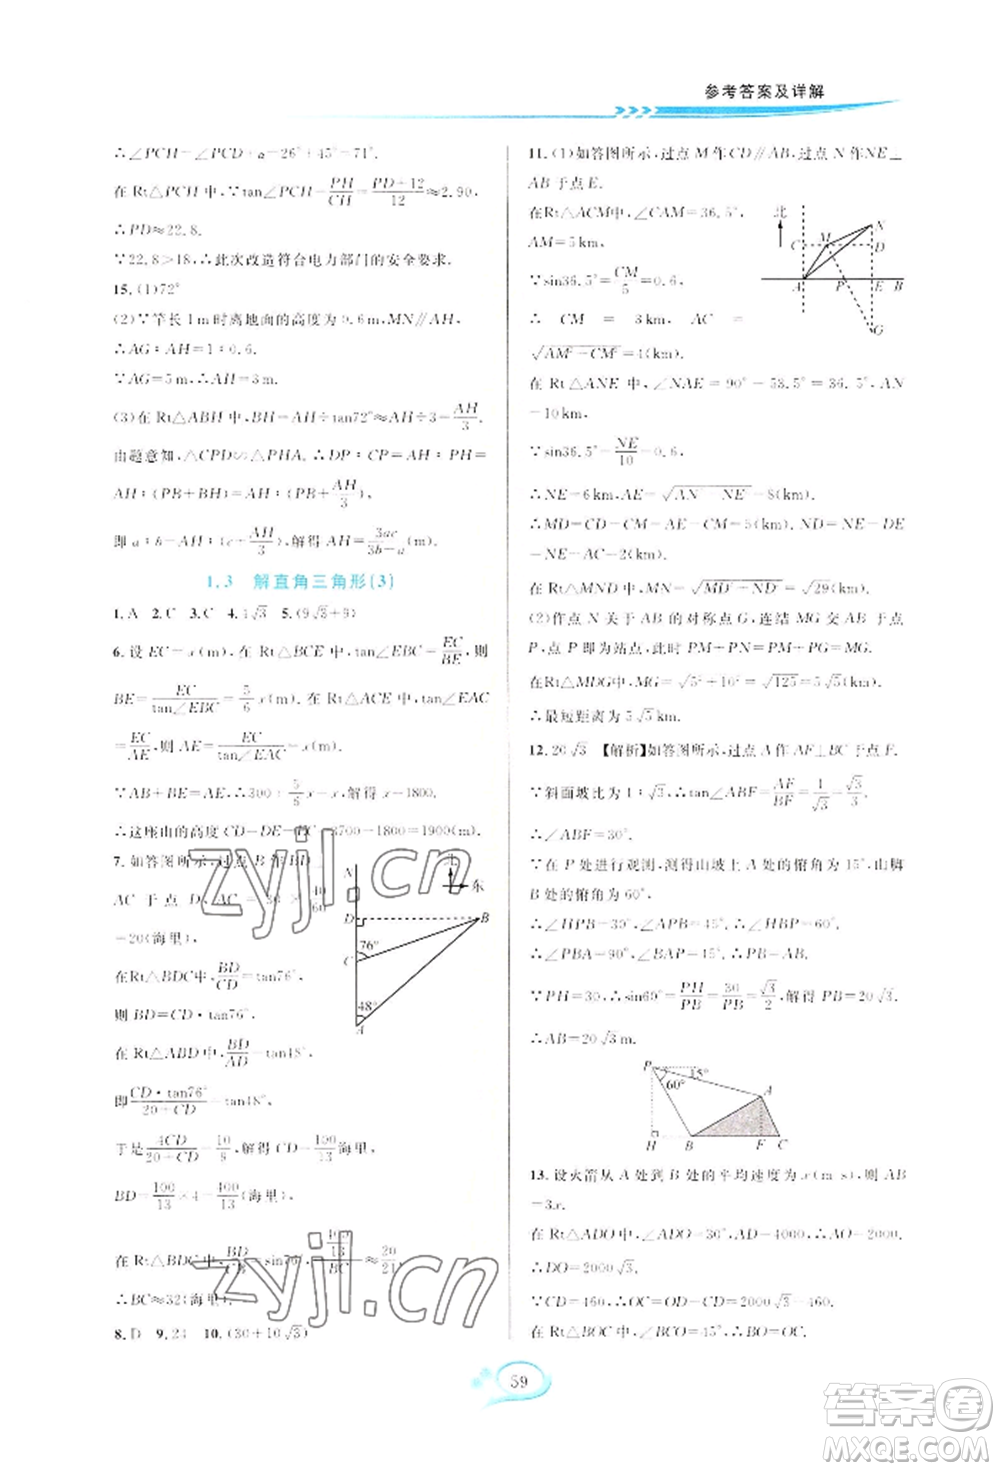 参考答案及详解
∴∠PCH=∠PCD+α=26°+45°=71°.
在 Rt△PCH 中,∵tan∠PCH=PH/CH=(PD+12)/12≈2.90,
∴PD≈22.8.
∵22.8>18,∴此次改造符合电力部门的安全要求.
15.(1)72°
(2)∵竿长 1 m 时离地面的高度为 0.6 m,MN∥AH,
∴AG∶AH=1∶0.6.
∵AG=5 m,∴AH=3 m.
(3)在 Rt△ABH 中,BH=AH÷tan72°≈AH÷3=AH/3.
由题意知,△CPD∽△PHA.∴DP∶CP=AH∶
PH=AH∶(PB+BH)=AH∶(PB+AH/3),
即 a∶b=AH∶(c+AH/3),解得 AH=3ac/(3b-a)(m).
1.3 解直角三角形(3)
1.A 2.C 3.C 4.4√3 5.(9√3+9)
6.设 EC=x(m),在 Rt△BCE 中,tan∠EBC=EC/BE,则
BE=EC/tan∠EBC=5/6 x(m).在 Rt△ACE 中,tan∠EAC
=EC/AE,则 AE=EC/tan∠EAC=x(m).
∵AB+BE=AE,∴300+5/6 x=x,解得 x=1800.
∴这座山的高度 CD=DE-EC=3700-1800=1900(m).
7.如答图所示,过点 B 作 BD⊥
AC 于点 D,AC=30×40/60
=20(海里).
在 Rt△BDC 中,BD/CD=tan76°,
则 BD=CD·tan76°.
在 Rt△ABD 中,BD/AD=tan48°,
即 CD·tan76°/(20+CD)=tan48°.
于是 4CD/(20+CD)=10/9,解得 CD=100/13海里.
BD=100/13×4=400/13(海里).
在 Rt△BDC 中,BD/BC=sin76°,(400/13)/BC≈20/21,
∴BC≈32(海里).
8.D 9.24 10.(30+10√3)
北
东
A
D
B
76°
C
48°
A
11.(1)如答图所示,过点 M 作 CD∥AB,过点 N 作 NE⊥
AB 于点 E.
在Rt△ACM中,∠CAM=36.5°,
AM=5 km,
∵sin36.5°=CM/5=0.6,
∴ CM = 3 km, AC =
√(AM²-CM²)=4(km).
在 Rt△ANE 中,∠NAE=90°-53.5°=36.5°,AN
=10 km,
∵sin36.5°=NE/10=0.6,
∴NE=6 km,AE=√(AN²-NE²)=8(km).
∴MD=CD-CM=AE-CM=5(km),ND=NE-
DE=NE-AC=2(km).
在 Rt△MND 中,MN=√(MD²+ND²)=√29(km).
(2)作点 N 关于 AB 的对称点 G,连结 MG 交 AB 于点
P,点P即为站点,此时 PM+PN=PM+PG=MG.
在Rt△MDG中,MG=√(5²+10²)=√125=5√5(km).
∴最短距离为 5√5 km.
北
C M D N
A P E B
G
12.20√3 【解析】如答图所示,过点 A 作 AF⊥BC 于点 F.
∵斜面坡比为 1∶√3,∴tan∠ABF=AF/BF=1/√3=√3/3.
∴∠ABF=30°.
∵在 P 处进行观测,测得山坡上 A 处的俯角为 15°,山脚
B 处的俯角为 60°,
∴∠HPB=30°,∠APB=45°.∴∠HBP=60°.
∴∠PBA=90°,∠BAP=45°.∴PB=AB.
∵PH=30,∴sin60°=PH/PB=30/PB=√3/2,解得 PB=20√3.
∴AB=20√3 m.
P
15°
60°
A
H B F C
13.设火箭从 A 处到 B 处的平均速度为 x(m/s),则 AB
=3x.
在 Rt△ADO 中,∠ADO=30°,AD=4000,∴AO=2000,
∴DO=2000√3.
∵CD=460,∴OC=OD-CD=2000√3-460.
在 Rt△BOC 中,∠BCO=45°,∴BO=OC.
59
zyjl.cn
zyjl.cn
答案圈
MXQE.COM